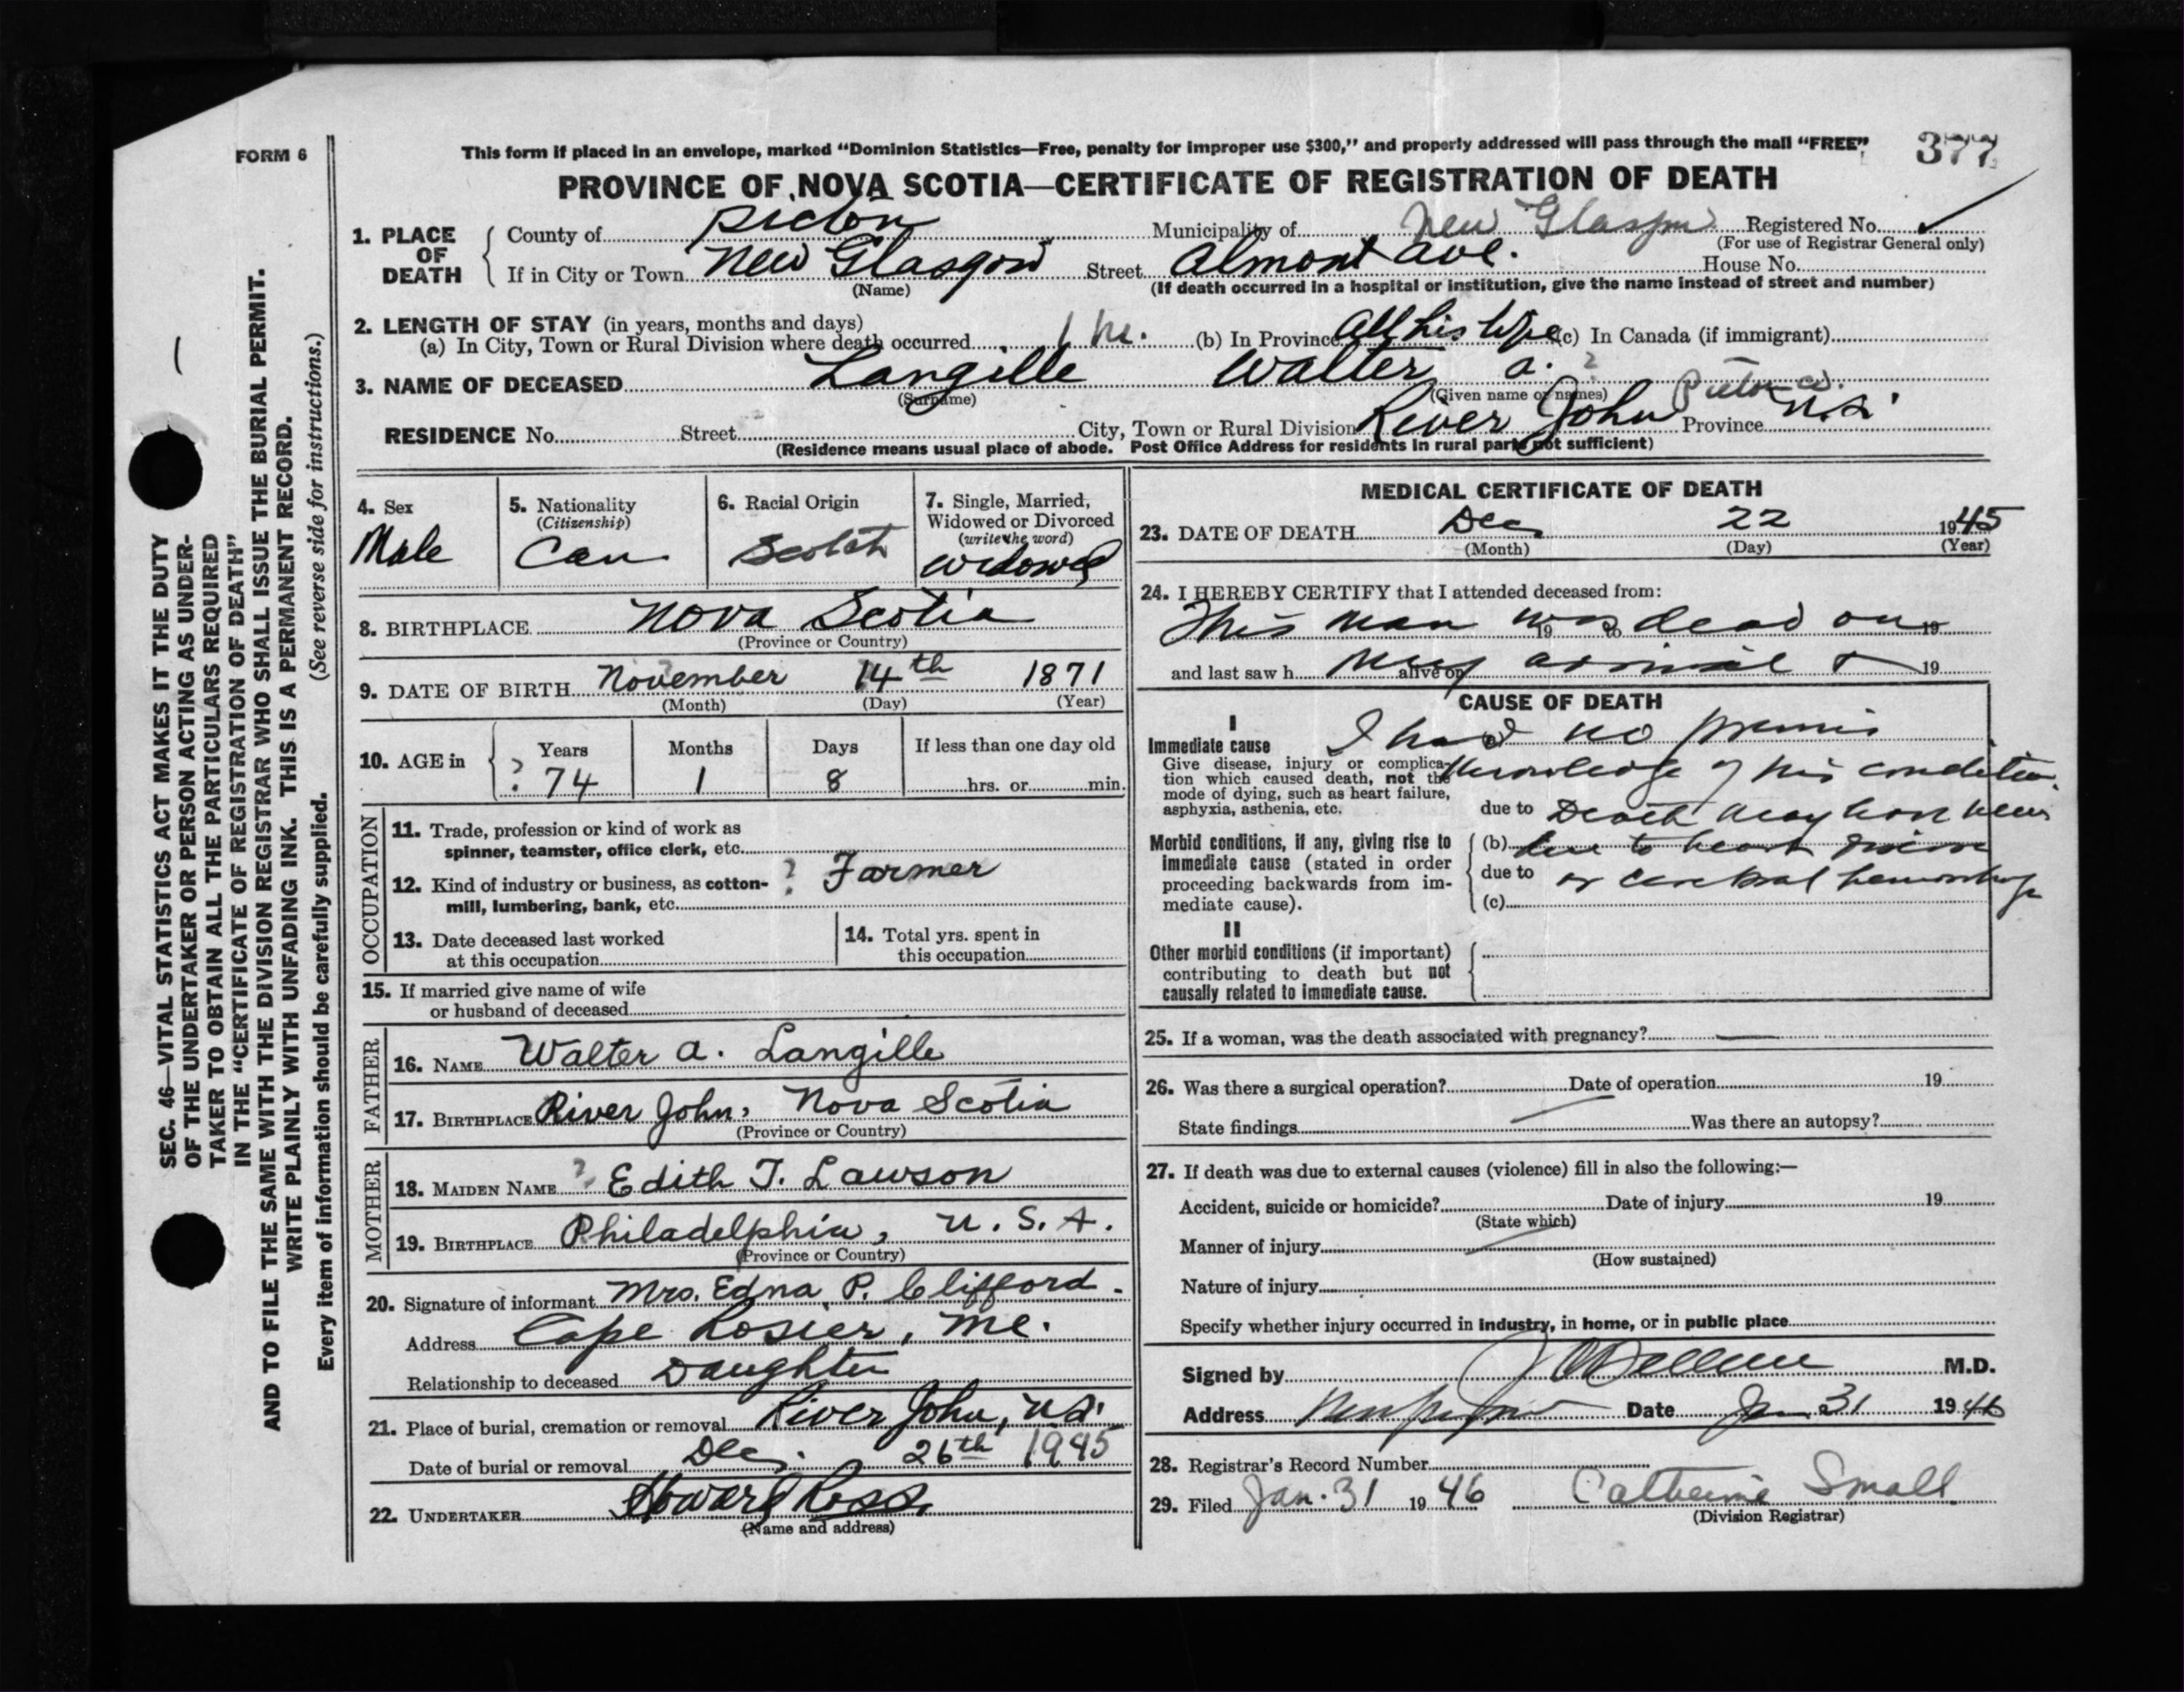 FORM 6
This form if placed in an envelope, marked "Dominion Statistics—Free, penalty for improper use $300," and properly addressed will pass through the mail "FREE"
377
PROVINCE OF NOVA SCOTIA—CERTIFICATE OF REGISTRATION OF DEATH
1. PLACE OF DEATH
County of Pictou Municipality of New Glasgow Registered No.
(For use of Registrar General only)
If in City or Town New Glasgow Street Almont Ave. House No.
(Name) (If death occurred in a hospital or institution, give the name instead of street and number)
2. LENGTH OF STAY (in years, months and days)
(a) In City, Town or Rural Division where death occurred (b) In Province All his life (c) In Canada (if immigrant)
3. NAME OF DECEASED Langille Walter A. ?
(Surname) (Given name or names)
Pictou Co.
RESIDENCE No. Street City, Town or Rural Division River John Province N.S.
(Residence means usual place of abode. Post Office Address for residents in rural parts not sufficient)
4. Sex
Male
5. Nationality
(Citizenship)
Can
6. Racial Origin
Scotch
7. Single, Married,
Widowed or Divorced
(write the word)
Widowed
8. BIRTHPLACE Nova Scotia
(Province or Country)
9. DATE OF BIRTH November 14th 1871
(Month) (Day) (Year)
10. AGE in
Years Months Days If less than one day old
? 74 1 8 hrs. or min.
OCCUPATION
11. Trade, profession or kind of work as
spinner, teamster, office clerk, etc.
12. Kind of industry or business, as cotton- ? Farmer
mill, lumbering, bank, etc.
13. Date deceased last worked
at this occupation
14. Total yrs. spent in
this occupation
15. If married give name of wife
or husband of deceased
FATHER
16. NAME Walter A. Langille
17. BIRTHPLACE River John, Nova Scotia
(Province or Country)
MOTHER
18. MAIDEN NAME ? Edith T. Lawson
19. BIRTHPLACE Philadelphia, U.S.A.
(Province or Country)
20. Signature of informant Mrs. Edna P. Clifford.
Address Cape Rosier, Me.
Relationship to deceased Daughter
21. Place of burial, cremation or removal River John, N.S.
Date of burial or removal Dec. 26th 1945
22. UNDERTAKER Howard Ross.
(Name and address)
MEDICAL CERTIFICATE OF DEATH
23. DATE OF DEATH Dec 22 1945
(Month) (Day) (Year)
24. I HEREBY CERTIFY that I attended deceased from:
This man was dead on 19 to 19
and last saw h my alive on arrival 19
CAUSE OF DEATH
I
Immediate cause I had no previous
Give disease, injury or complica-
tion which caused death, not the knowledge of his condition.
mode of dying, such as heart failure,
asphyxia, asthenia, etc.
due to Death may have been
Morbid conditions, if any, giving rise to
immediate cause (stated in order
proceeding backwards from im-
mediate cause).
(b) due to heart disease
due to or cerebral hemorrhage
(c)
II
Other morbid conditions (if important)
contributing to death but not
causally related to immediate cause.
25. If a woman, was the death associated with pregnancy?
26. Was there a surgical operation? Date of operation 19
State findings Was there an autopsy?
27. If death was due to external causes (violence) fill in also the following:—
Accident, suicide or homicide? Date of injury 19
(State which)
Manner of injury
(How sustained)
Nature of injury
Specify whether injury occurred in industry, in home, or in public place
Signed by M.D.
Address Date Jan 31 1946
28. Registrar's Record Number
29. Filed Jan. 31 1946 Catherine Small
(Division Registrar)
SEC. 46—VITAL STATISTICS ACT MAKES IT THE DUTY
OF THE UNDERTAKER OR PERSON ACTING AS UNDER-
TAKER TO OBTAIN ALL THE PARTICULARS REQUIRED
IN THE "CERTIFICATE OF REGISTRATION OF DEATH"
AND TO FILE THE SAME WITH THE DIVISION REGISTRAR WHO SHALL ISSUE THE BURIAL PERMIT.
WRITE PLAINLY WITH UNFADING INK. THIS IS A PERMANENT RECORD.
Every item of information should be carefully supplied. (See reverse side for instructions.)